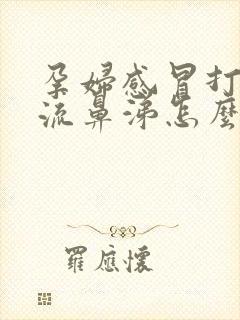 孕婦感冒打
流鼻涕怎麼
羅應懷